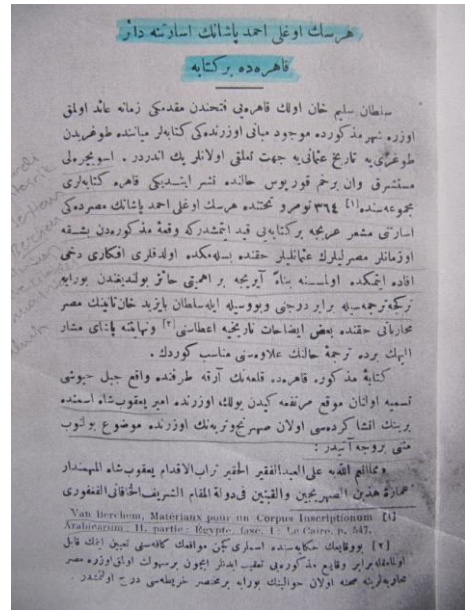 هرسك اوغلى احمد پاشانك اسارتنه دائر
قاهره‌ده بر كتابه
سلطان سليم خان اولك قاهره‌يى فتحندن مقدمكى زمانه عائد اولمق
اوزره شهر مذكورده موجود مبانى اوزرنده‌كى كتابه‌لر مياننده طوغريدن
طوغرى‌يه تاريخ عثمانى‌يه جهت تعلقى اولانلر پك اندردر. اسويچره‌لى
مستشرق وان برخم قورپوس حالنده نشر ايتديكى قاهره كتابه‌لرى
مجموعه‌سنده [١] ٣٦٤ نومرو تحتنده هرسك اوغلى احمد پاشانك مصرده‌كى
اسارتنى مشعر عربجه بر كتابه‌يى قيد ايتمشدركه وقعهٔ مذكوره‌دن بشقه
اوزمانلر مصرليلرك عثمانليلر حقنده بسله‌مكده اولدقلرى افكارى دخى
افاده ايتمكده اولمسنه بناءً آيريجه بر اهميتى حائز بولنديغندن بورايه
تركجه ترجمه‌سيله برابر درجنى وبووسيله ايله سلطان بايزيد خان ثانينك مصر
محارباتى حقنده بعض ايضاحات تاريخيه اعطاسنى [٢] ونهايتنه پاشاى مشار
اليهك برده ترجمهٔ حالنك علاوه‌سنى مناسب كوردك.
كتابهٔ مذكوره قاهره‌ده قلعه‌نك آرقه طرفنده واقع جبل جيوشى
تسميه اولنان موقع مرتفعه كيدن يولك اوزرنده امير يعقوب شاه اسمنده
برينك انشا كرده‌سى اولان صهرنج وتربه‌نك اوزرنده موضوع بولنوب
متنى بروجه آتيدر:
الله به على العبد الفقير الحقير تراب الاقدام يعقوب شاه المهمندار
عمارة هذين الصهريجين والقبتين فى دولة المقام الشريف الخاقانى القغفورى
[١] Van Berchem, Matériaux pour un Corpus Inscriptionum
Arabicarum. II. partie: Egypte, fasc. I: Le Caire. p. 547.
[٢] بووقايعك حكايه‌سنده اسملرى كچن مواقعك كافه‌سنى تعيين ايتمك قابل
اوله‌مامقله برابر وقايع مذكوره‌يى تعقيب ايدنلر ايچون برسهولت اولمق اوزره مصر
محاربه‌لرينه صحنه اولان حوالينك بورايه برمختصر خريطه‌سى درج اولنمشدر.